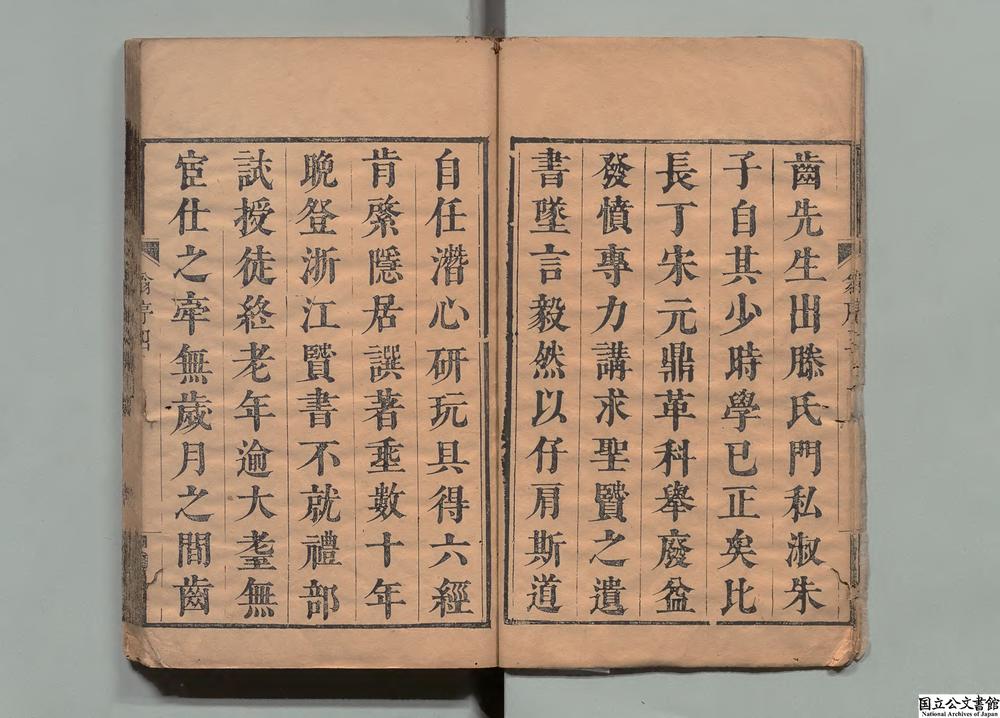 齒先生出滕氏門私淑朱
子自其少時學已正矣比
長丁宋元鼎革科舉廢益
發憤專力講求聖賢之遺
書墜言毅然以仔肩斯道
自任潛心研玩具得六經
肯綮隱居譔著垂數十年
晚登浙江賢書不就禮部
試授徒終老年逾大耋無
宦仕之牽無歲月之間齒
翁序四
国立公文書館
National Archives of Japan